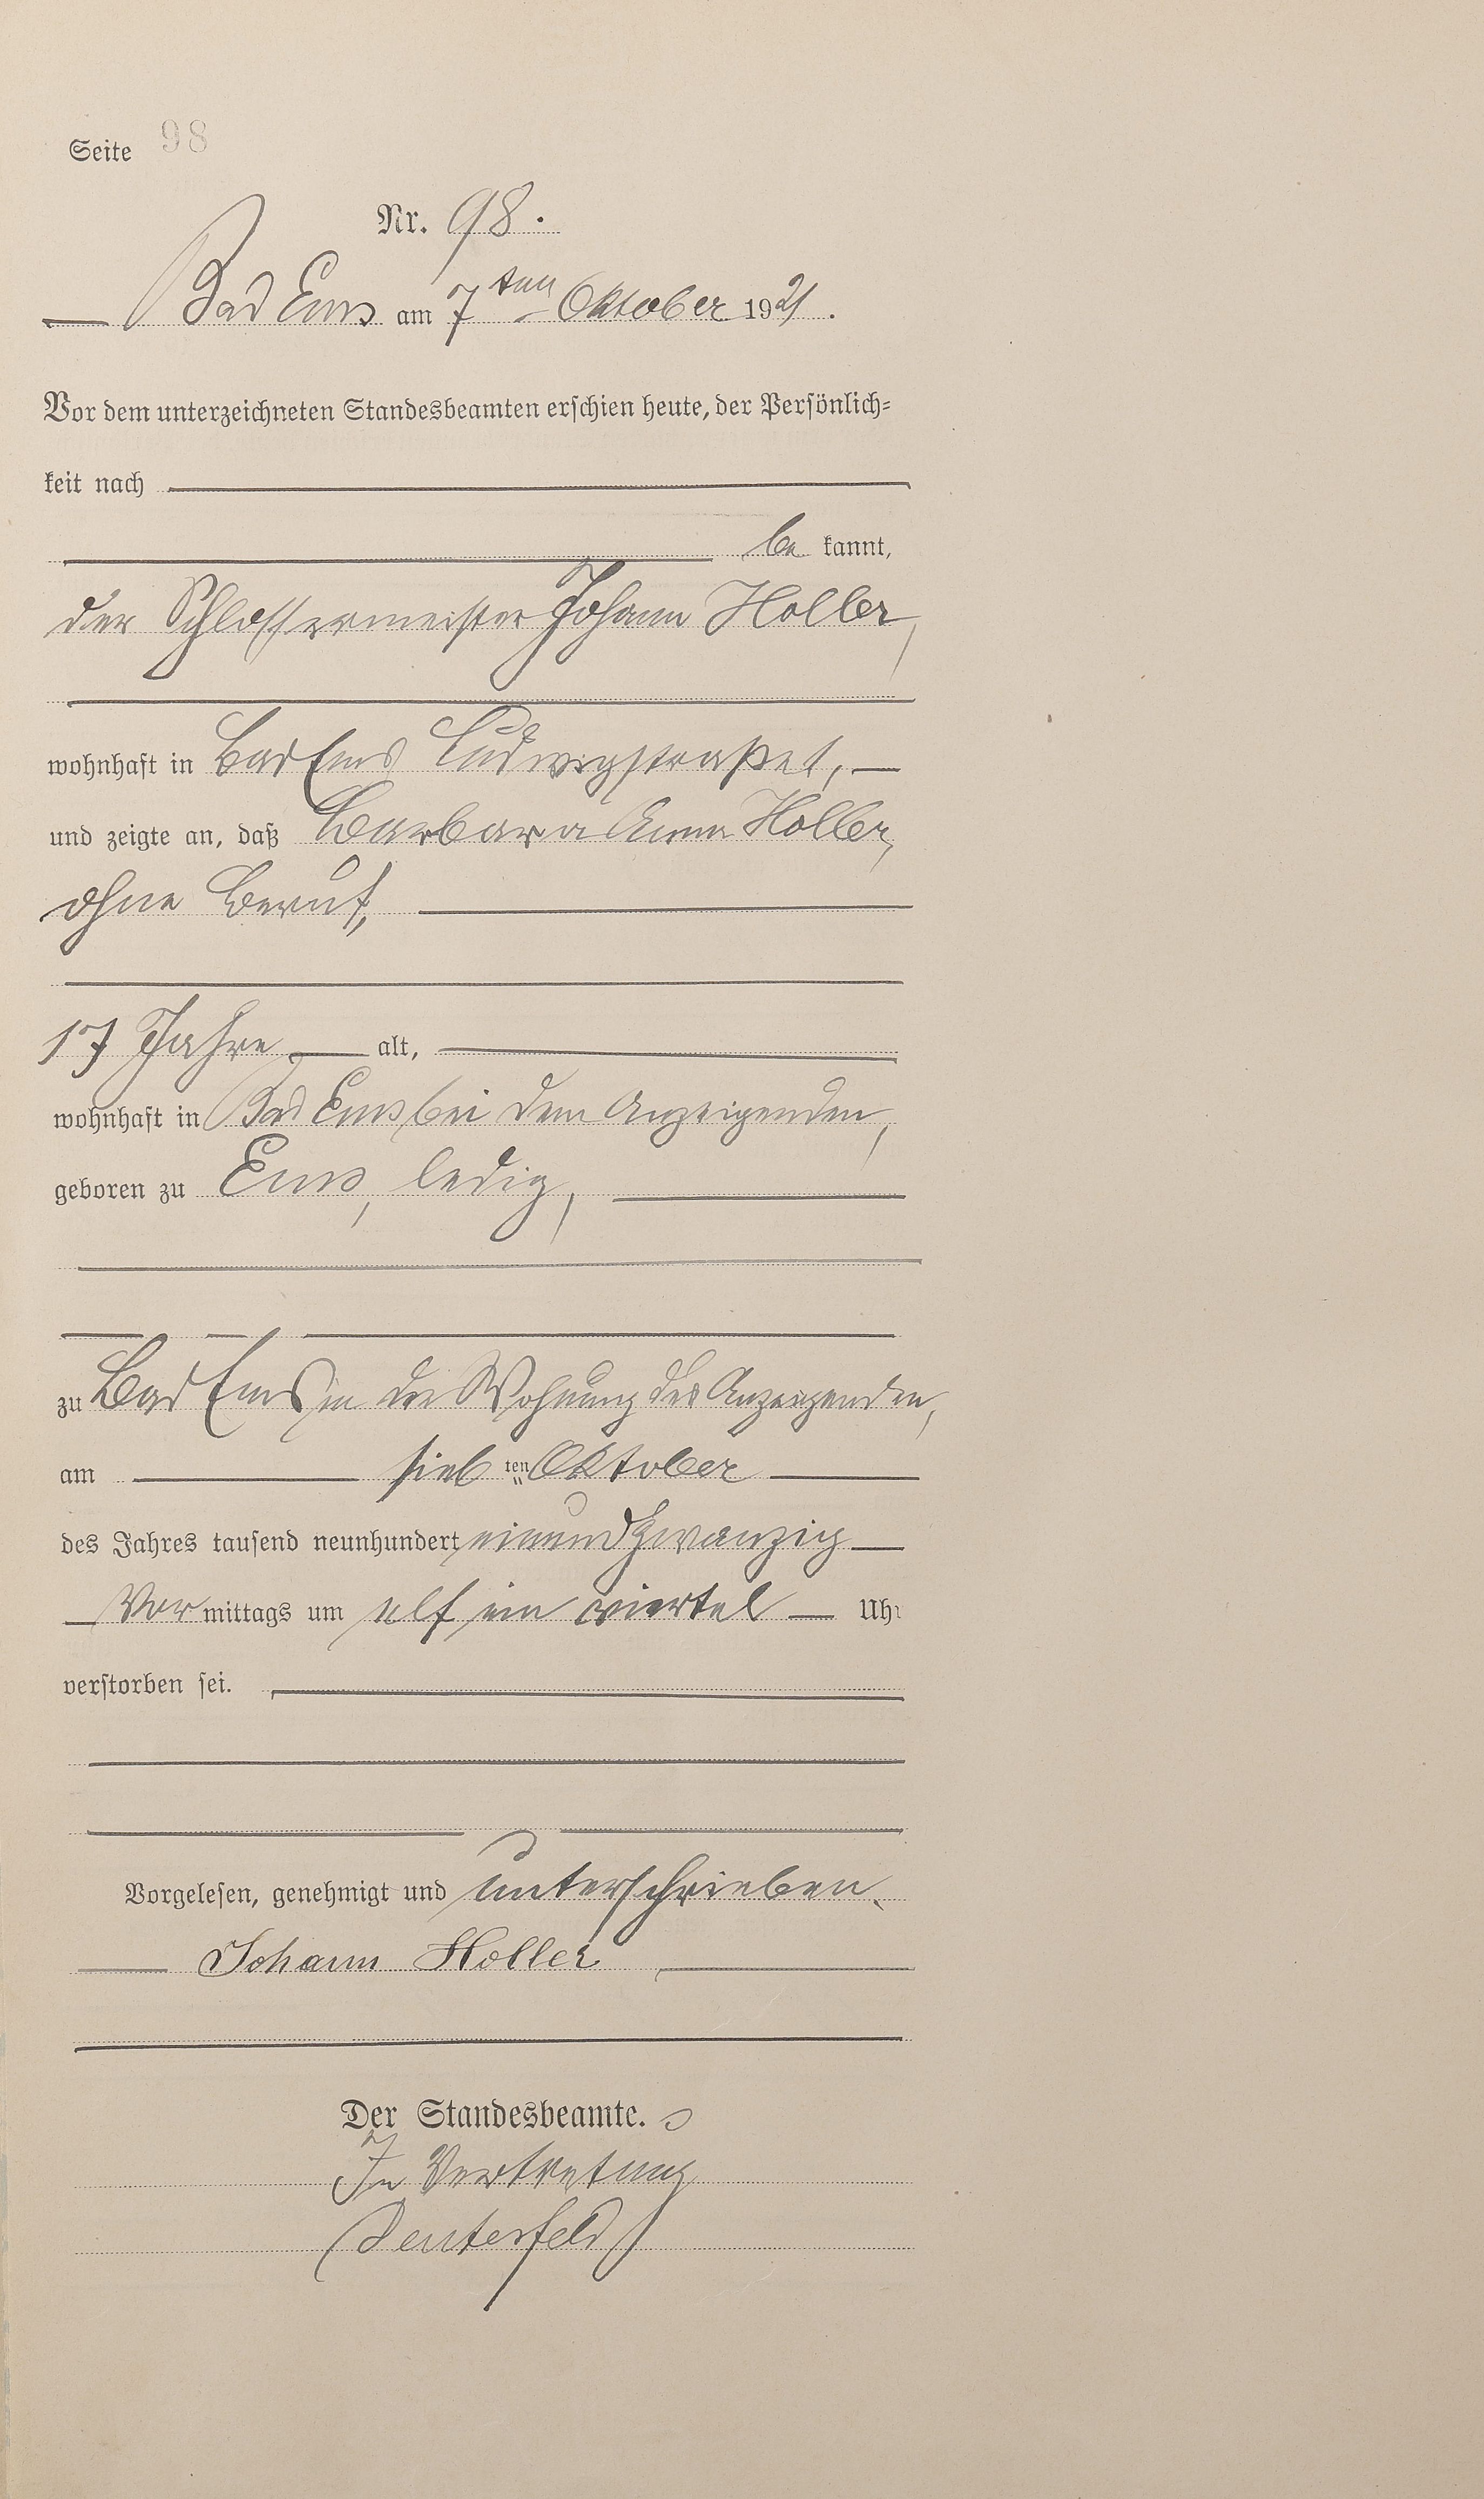 Seite 98
Nr. 98.
Bad Ems am 7ten Oktober 1921.
Vor dem unterzeichneten Standesbeamten erschien heute, der Persönlich-
keit nach
be kannt,
der Schlossermeister Johann Holler,
wohnhaft in Bad Ems Ludwigstraße 1,
und zeigte an, daß Barbara Anna Holler,
ohne Beruf,
17 Jahre alt,
wohnhaft in Bad Ems bei dem Anzeigenden,
geboren zu Ems, ledig,
zu Bad Ems in der Wohnung des Anzeigenden,
am sieb ten Oktober
des Jahres tausend neunhundert einundzwanzig
Vor mittags um elf ein viertel Uhr
verstorben sei.
Vorgelesen, genehmigt und unterschrieben.
Johann Holler
Der Standesbeamte.
In Vertretung